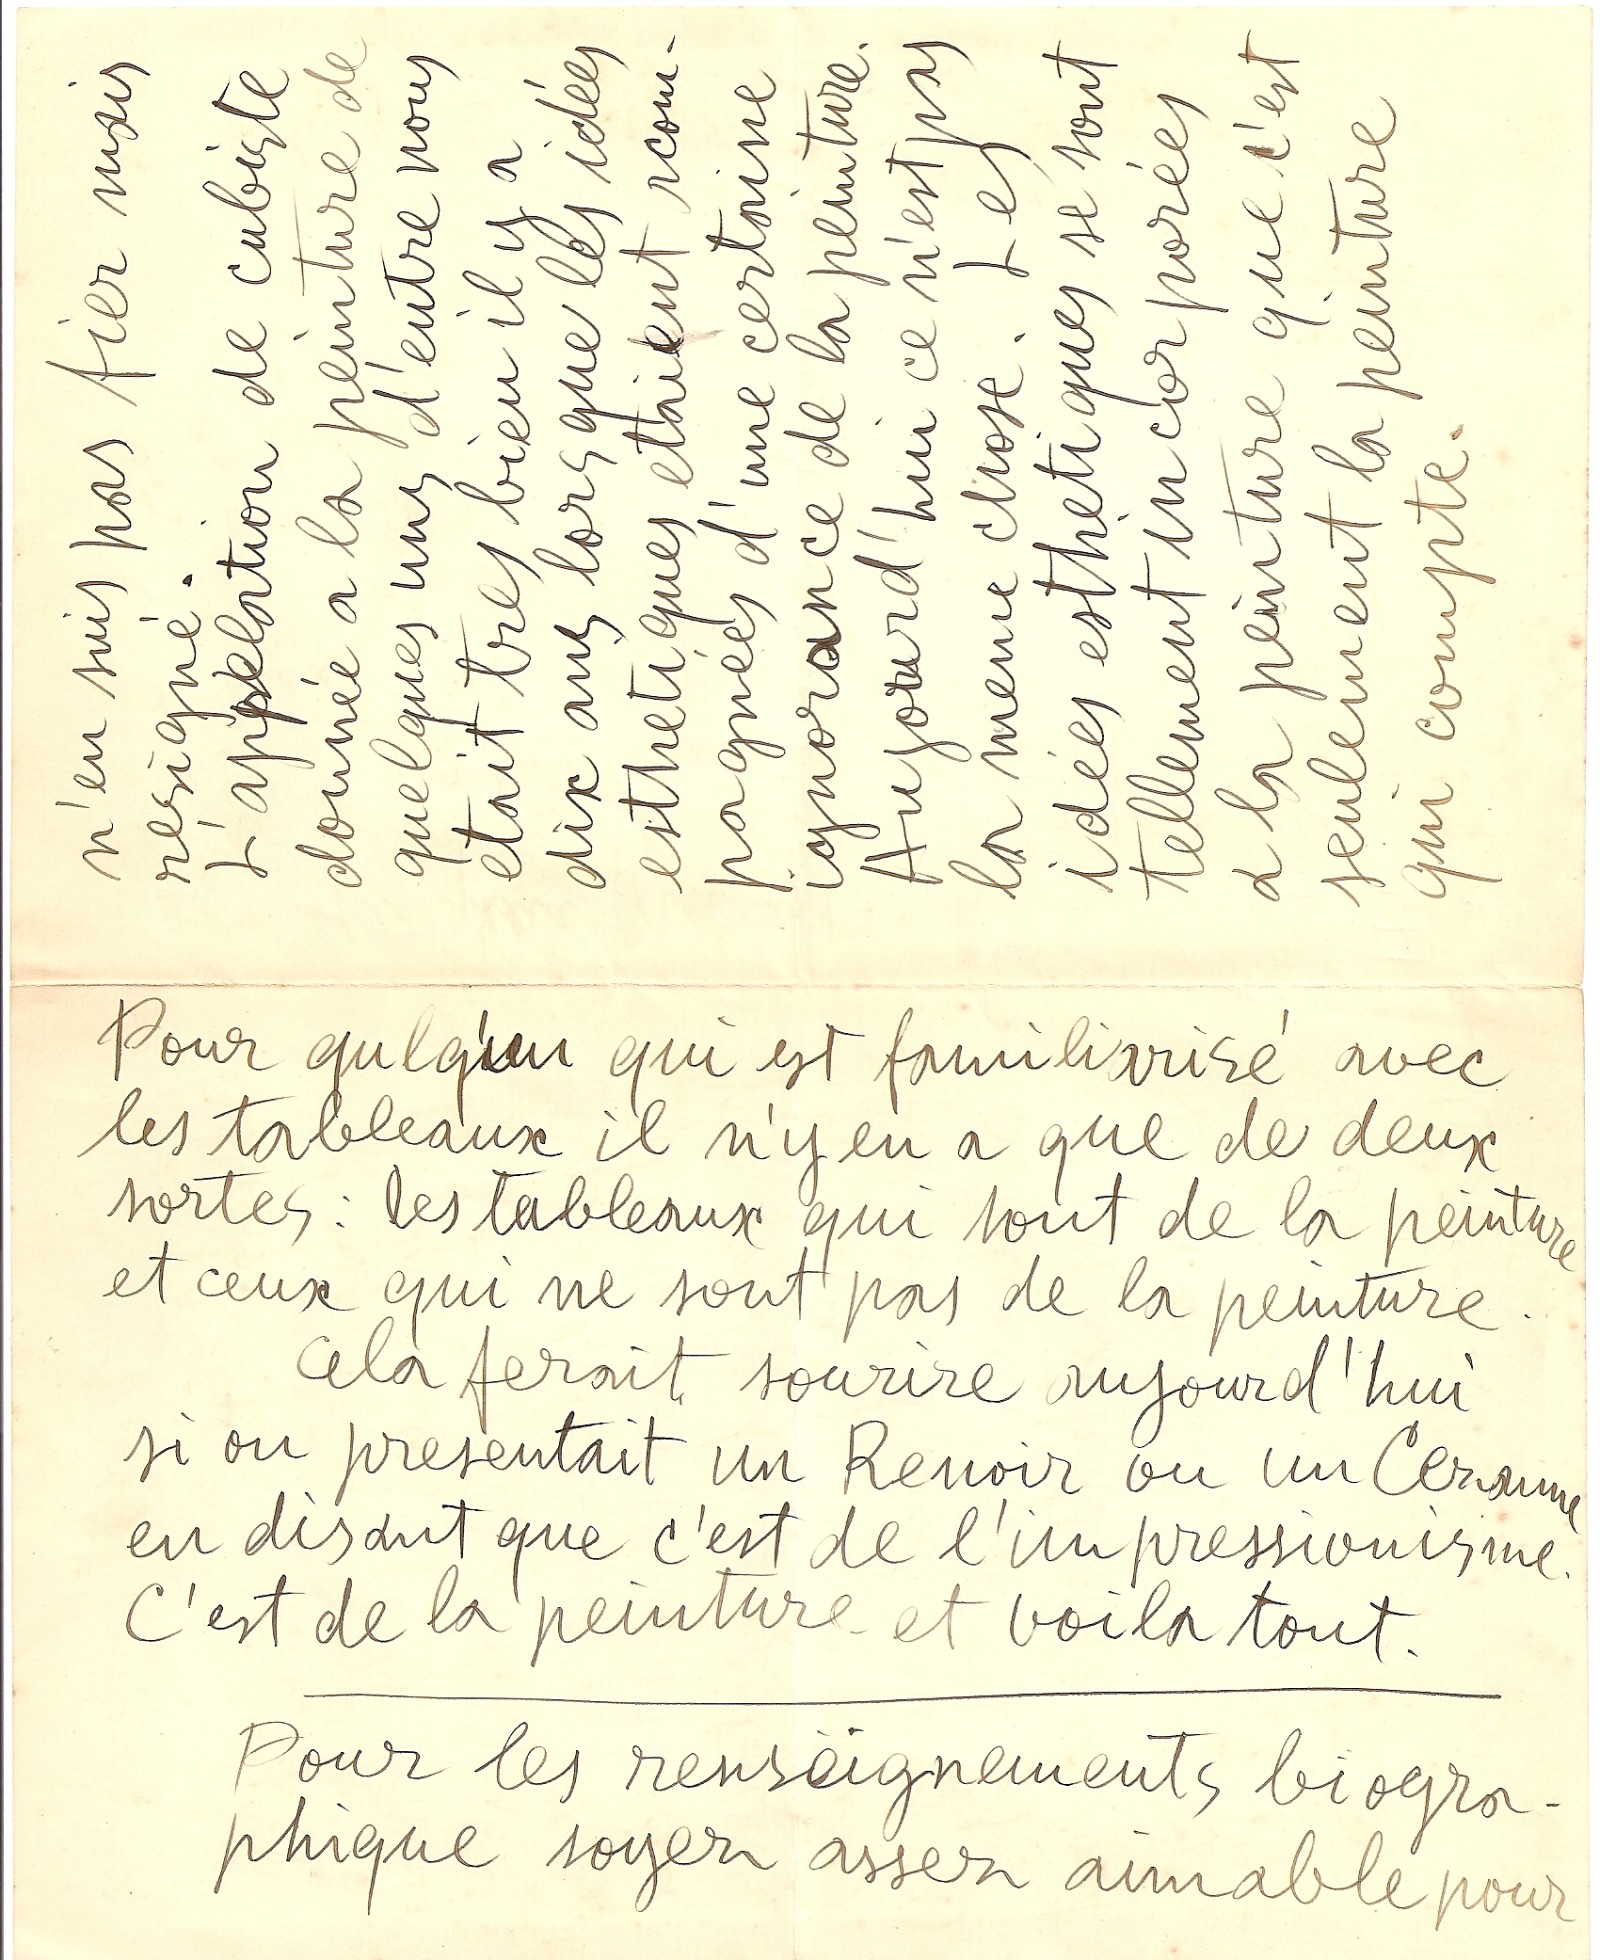 n'en suis pas fier mais
résigné.
L'appelation de cubiste
donnée a la peinture de
quelques uns d'entre nous
etait tres bien il y a
dix ans lorsque les idées
esthetiques etaient acom-
pagnées d'une certaine
ignorance de la peinture.
Aujourd'hui ce n'est pas
la meme chose. Les
idées esthetiques se sont
tellement incorporées
a la peinture que c'est
seulement la peinture
qui compte.
Pour qulqu'un qui est familiarisé avec
les tableaux il n'y en a que de deux
sortes: les tableaux qui sont de la peinture
et ceux qui ne sont pas de la peinture.
Cela ferait sourire aujourd'hui
si on presentait un Renoir ou un Cezanne
en disant que c'est de l'impressionisme.
C'est de la peinture et voila tout.
Pour les renseignements biogra-
phique soyez assez aimable pour